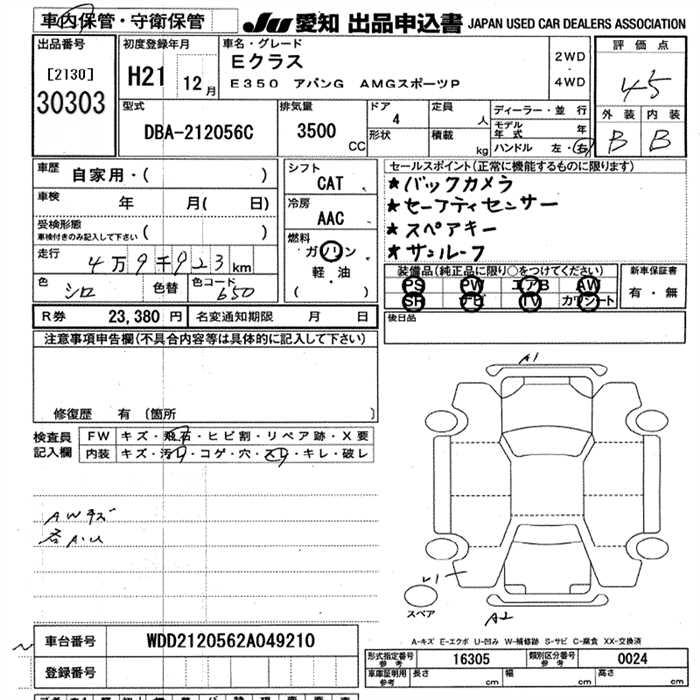 車内保管・守衛保管
JU 愛知 出品申込書 JAPAN USED CAR DEALERS ASSOCIATION
出品番号
[2130]
30303
初度登録年月
H21 12月
車名・グレード
Eクラス
E350 アバンG AMGスポーツP
2WD
・
4WD
評価点
4.5
外装 内装
B B
型式
DBA-212056C
排気量
3500
CC
ドア
4
形状
定員
人
積載
kg
ディーラー・並行
モデル年式 年
ハンドル 左・右
車歴
自家用・( )
車検 年 月( 日)
受検形態
車検付きのみ記入して下さい ( )
走行 4万9千923km
色 シロ 色替 色コード 650
シフト
CAT
冷房
AAC
燃料
ガソリン
軽・油
( )
セールスポイント(正常に機能するものに限ります)
★バックカメラ
★セーフティセンサー
★スペアキー
★サンルーフ
装備品(純正品に限り○をつけてください)
PS PW エアB AW
SR ナビ TV カワシート
新車保証書
有・無
後日品
R券 23,380円 名変通知期限 月 日
注意事項申告欄(不具合内容等は具体的に記入して下さい)
修復歴 有(箇所 )
検査員
記入欄
FW キズ・飛石・ヒビ割・リペア跡・X要
内装 キズ・汚れ・コゲ・穴・スレ・キレ・破レ
AWキズ
各A.U
A1
U1
スペア
A2
A-キズ E-エクボ U-凹み W-補修跡 S-サビ C-腐食 XX-交換済
車台番号 WDD2120562A049210
登録番号
形式指定番号
参考
16305
類別区分番号
参考
0024
車庫証明用
参考
長さ cm 幅 cm 高さ cm